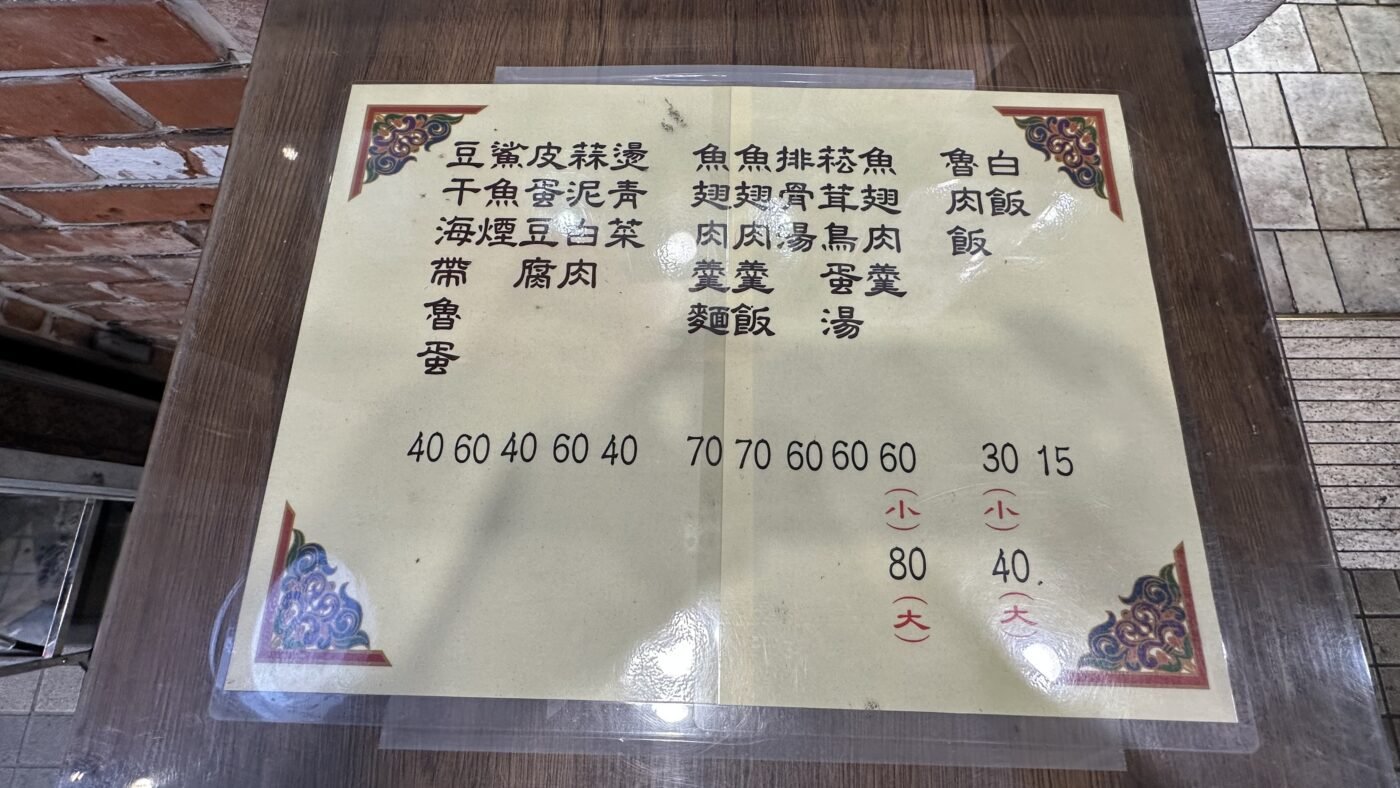 白飯 15
魯肉飯 30(小) 40(大)
魚翅肉羹 60(小) 80(大)
菘茸鳥蛋湯 60
排骨湯 60
魚翅肉羹飯 70
魚翅肉羹麵 70
燙青菜 40
蒜泥白肉 60
皮蛋豆腐 40
鯊魚煙 60
豆干海帶魯蛋 40